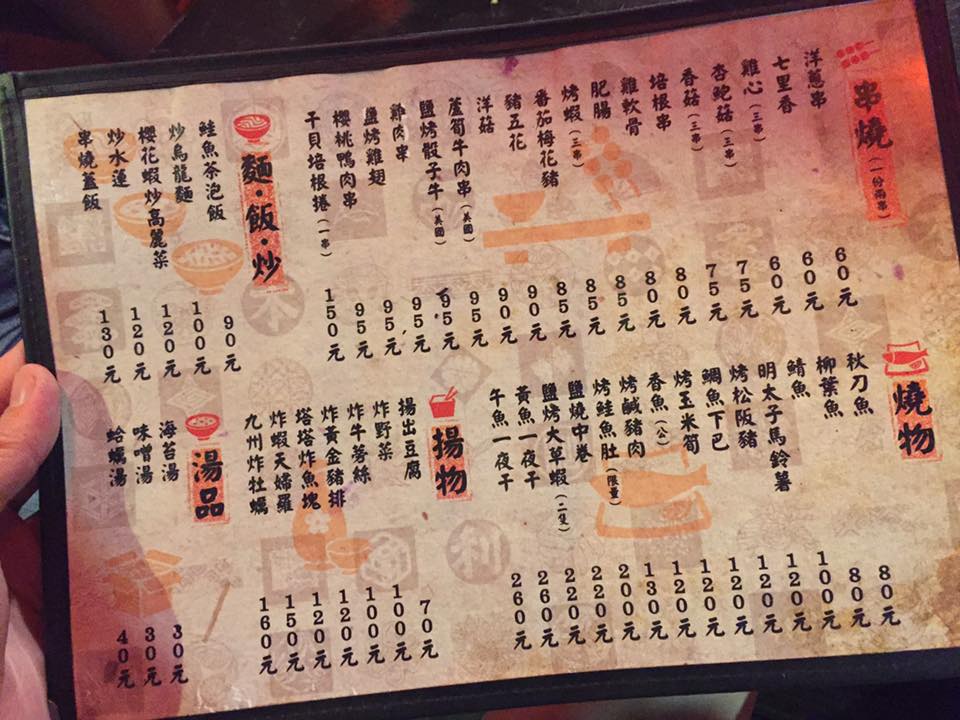 串燒(一份兩串)
洋蔥串 60元
七里香 60元
雞心(三串) 60元
杏鮑菇(三串) 75元
香菇(三串) 75元
培根串 80元
雞軟骨 80元
肥腸 85元
烤蝦(三串) 85元
番茄梅花豬 85元
豬五花 90元
洋菇 90元
蘆筍牛肉串(美國) 95元
鹽烤骰子牛(美國) 95元
雞肉串 95元
鹽烤雞翅 95元
櫻桃鴨肉串 95元
干貝培根捲(一串) 150元
麵・飯・炒
鮭魚茶泡飯 90元
炒烏龍麵 100元
櫻花蝦炒高麗菜 120元
炒水蓮 120元
串燒蓋飯 130元
燒物
秋刀魚 80元
柳葉魚 80元
鯖魚 100元
明太子馬鈴薯 120元
烤松阪豬 120元
鯛魚下巴 120元
烤玉米筍 120元
香魚(公) 120元
烤鹹豬肉 130元
烤鮭魚肚(限量) 200元
鹽燒中卷 220元
鹽烤大草蝦(二隻) 220元
黃魚一夜干 260元
午魚一夜干 260元
揚物
揚出豆腐 70元
炸野菜 100元
炸牛蒡絲 100元
炸黃金豬排 120元
塔塔炸魚塊 120元
炸蝦天婦羅 150元
九州炸牡蠣 160元
湯品
海苔湯 30元
味噌湯 30元
蛤蠣湯 40元
利